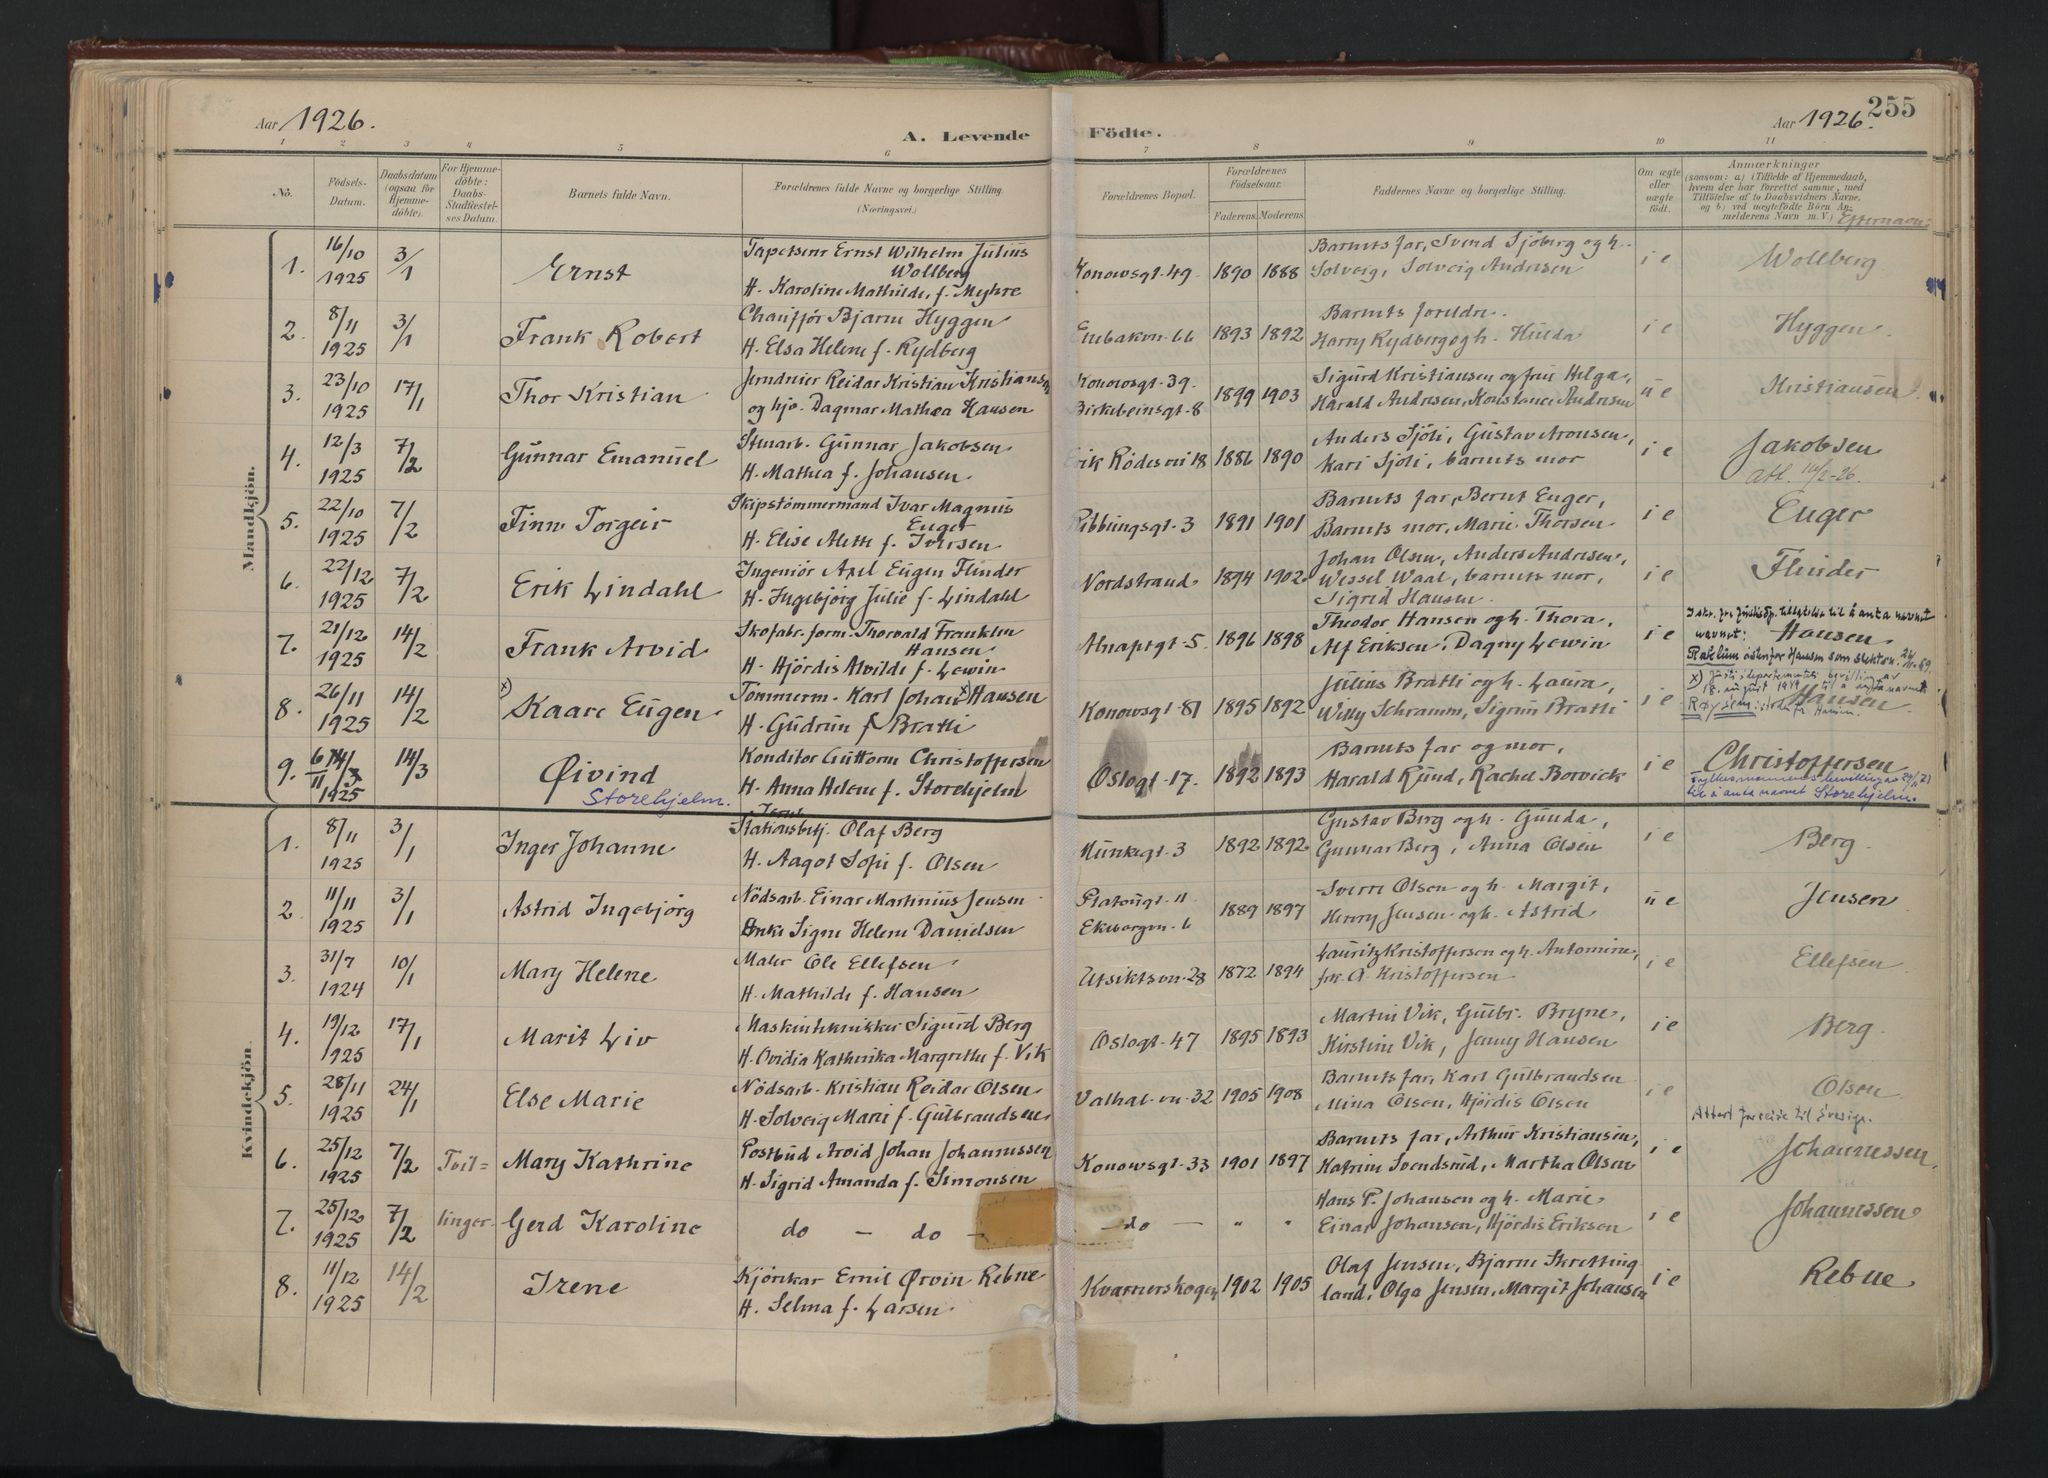 Aar 1926.
A. Levende
Födte.
Aar 1926.
255
1 2 3 4 5 6 7 8 9 10 11
No.
Födsels-Datum.
Daabsdatum (ogsaa for Hjemmedöbte).
For Hjemmedöbte: Daabs-Stadfæstelses Datum.
Barnets fulde Navn.
Forældrenes fulde Navne og borgerlige Stilling. (Næringsvei.)
Forældrenes Bopæl.
Forældrenes Födselsaar.
Faderens. Moderens.
Faddernes Navne og borgerlige Stilling.
Om ægte eller uægte födt.
Anmærkninger
(saasom: a) i Tilfælde af Hjemmedaab, hvem der har forrettet samme, med Tilföielse af to Daabsvidners Navne, og b) ved uægtefödte Börn Anmelderens Navn m.V.) Efternavn:
Mandkjön.
1. 16/10 1925 3/1 Ernst
Tapetserer Ernst Wilhelm Julius Wollberg
H. Karoline Mathilde, f. Myhre
Konowsgt. 49 1890 1888
Barnets far, Svend Sjöberg og h. Solveig, Solveig Andersen
i e Wollberg
2. 8/11 1925 3/1 Frank Robert
Chaufför Bjarne Hyggen
H. Elsa Helene f. Rydberg
Enebakvn. 66 1893 1892
Barnets foreldre.
Harry Rydberg og h. Hulda
i e Hyggen.
3. 23/10 1925 17/1 Thor Kristian
Jerndreier Reidar Kristian Kristiansen
og hjp. Dagmar Mathea Hansen
Konowsgt. 39.
Birkebeinsgt. 8 1899 1903
Sigurd Kristiansen og frue Helga,
Harald Andresen, Konstance Andresen
u e Kristiansen
4. 12/3 1925 7/2 Gunnar Emanuel
Stenarb. Gunnar Jakobsen
H. Mathea f. Johansen
Erik Rödesvei 18 1886 1890
Anders Sjöli, Gustav Aronsen,
Kari Sjöli, barnets mor
i e Jakobsen
Att. 16/2-26.
5. 22/10 1925 7/2 Finn Torgeir
Skipstömmermand Ivar Magnus Enger
H. Elise Alette f. Iversen
Ribbungsgt. 3 1891 1901
Barnets far, Bernt Enger,
Barnets mor, Marie Thorsen
i e Enger
6. 22/12 1925 7/2 Erik Lindahl
Ingeniör Axel Eugen Flinder
H. Ingebjorg Julie f. Lindahl
Nordstrand 1894 1902
Johan Olsen, Anders Andresen,
Wessel Waal, barnets mor,
Sigrid Hansen.
i e Flinder
7. 21/12 1925 14/2 Frank Arvid
Skofabr. form. Thorvald Franklin Hansen
H. Hjördis Alvilde f. Lewin
Alnaptgt. 5. 1896 1898
Theodor Hansen og h. Thora,
Alf Eriksen, Dagny Lewin
i e Hansen
8. 26/11 1925 14/2 x) Kaare Eugen
Tömmerm. Karl Johan x) Hansen
H. Gudrun f. Bratli
Konowsgt. 81 1895 1892
Julius Bratli og h. Laura,
Willy Schramm, Sigrun Bratli
i e
x) Justisdepartementets bevilling av
18. august 1949 til å anta navnet
Hansen
Røysem istedenfor Hansen.
9. 1925 14/3 Øivind
Storehjelm.
Konditor Guttorm Christoffersen
H. Anna Helene f. Storehjelm
Oslogt. 17. 1892 1893
Barnets far og mor,
Harald Rund, Rachel Borvick
i e Christoffersen
Fylkesmannens bevilling av
til å anta navnet Storehjelm.
Kvindekjön.
1. 8/11 1925 3/1 Inger Johanne
Jernb. Stationsbetj. Olaf Berg
H. Aagot Sofie f. Olsen
Munkegt. 3 1892 1892
Gustav Berg og h. Gunda,
Gunnar Berg, Anna Olsen
i e Berg.
2. 11/11 1925 3/1 Astrid Ingebjörg
Nödsarb. Einar Martinius Jensen
Enke Signe Helene Danielsen
Platougt. 11
Ekebergvn. 6 1889 1897
Sverre Olsen og h. Margit,
Henry Jensen og h. Astrid
u e Jensen
3. 31/7 1924 10/1 Mary Helene
Maler Ole Ellefsen
H. Mathilde f. Hansen
Utsiktsvn. 28 1872 1894
Lauritz Kristoffersen og h. Antomine,
frk A. Kristoffersen
i e Ellefsen
4. 19/12 1925 17/1 Marit Liv
Maskintekniker Sigurd Berg
H. Ovidia Kathrika Margrethe f. Vik
Oslogt. 47 1895 1893
Martin Vik, Gulbr. Bryne,
Kirstine Vik, Jenny Hansen
i e Berg.
5. 28/11 1925 24/1 Else Marie
Nödsarb. Kristian Reidar Olsen
H. Solveig Marie f. Gulbrandsen
Valhal. vn. 32 1905 1908
Barnets far, Karl Gulbrandsen
Mina Olsen, Hjördis Olsen
i e Olsen
Attest for reise til Sverige.
6. 25/12 1925 7/2 Tvil= Mary Kathrine
Postbud Arvid Johan Johannessen
H. Sigrid Amanda f. Simonsen
Konowsgt. 33 1901 1897
Barnets far, Arthur Kristiansen,
Katrine Svendsrud, Martha Olsen
i e Johannessen.
7. 25/12 1925 7/2 linger. Gerd Karoline
do — do —
do — " "
Hans P. Johansen og h. Marie
Einar Johansen, Hjördis Eriksen
i e Johannessen
8. 11/12 1925 14/2 Irene
Kjörekar Emil Ørvin Rebne
H. Selma f. Larsen.
Kvarnerskogen 1902 1905
Olaf Jensen, Bjarne Skretting
land, Olga Jensen, Margit Johansen
i e Rebne